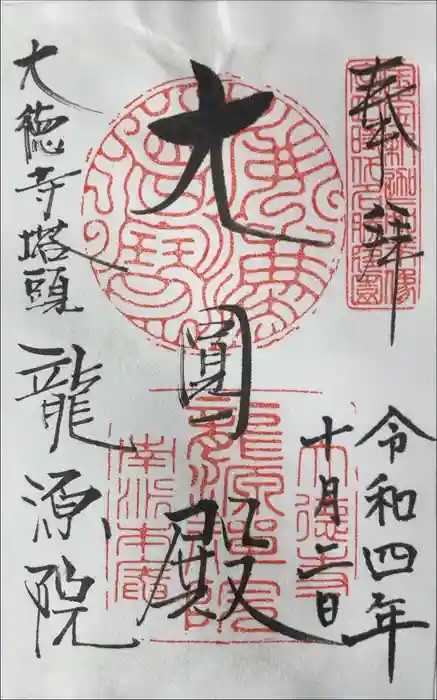 奉拝
令和四年
十月二日
大圓殿
大徳寺塔頭
龍源院